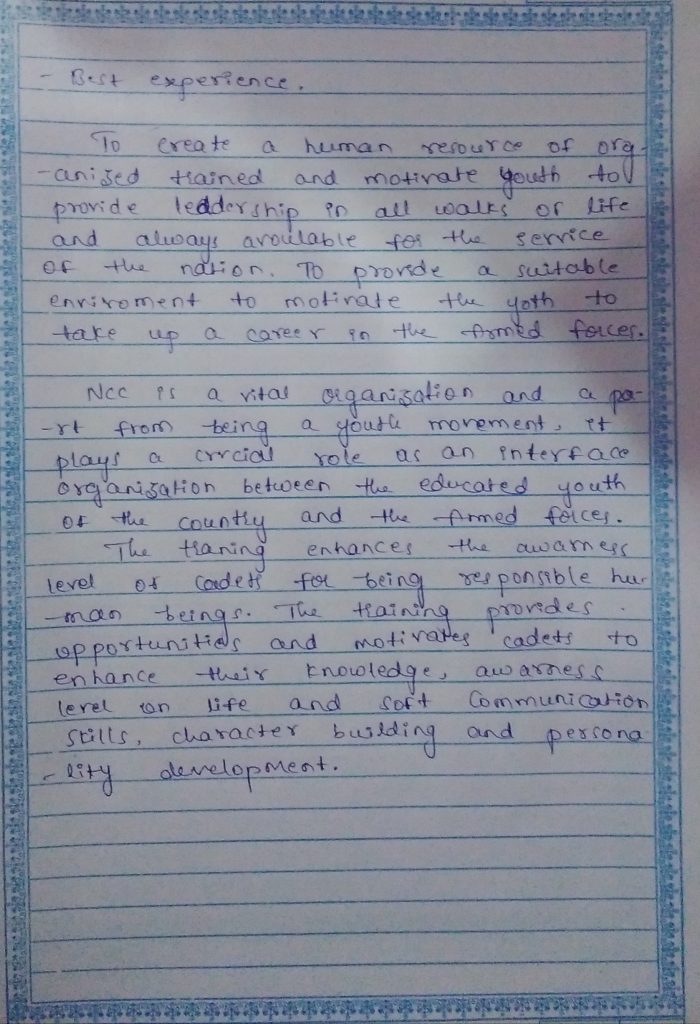 - Best experience.
To create a human resource of org-
-anized trained and motivate youth to
provide leaddership in all walks of life
and always available for the service
of the nation. To provide a suitable
enviroment to motivate the yoth to
take up a career in the Armed forces.
NCC is a vital organization and a pa-
-rt from being a youth movement, it
plays a crucial role as an interface
organization between the educated youth
of the country and the Armed forces.
The traning enhances the awarness
level of cadets for being responsible hu-
-man beings. The training provides
opportunities and motivates cadets to
enhance their knowledge, awarness
level on life and soft Communication
stills, character building and persona
-lity development.